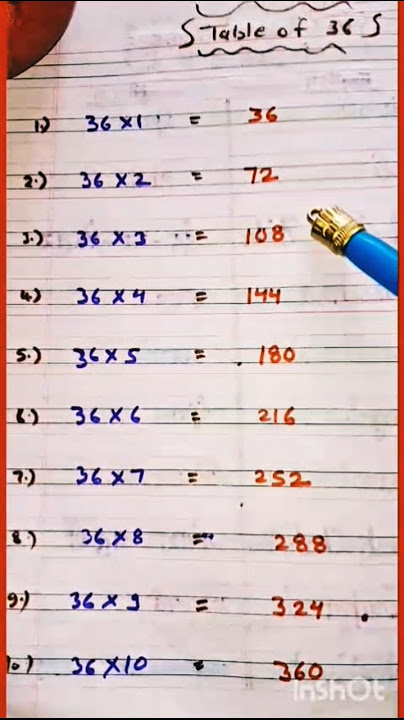 Table of 36
1.) 36 × 1 = 36
2.) 36 × 2 = 72
3.) 36 × 3 = 108
4.) 36 × 4 = 144
5.) 36 × 5 = 180
6.) 36 × 6 = 216
7.) 36 × 7 = 252
8.) 36 × 8 = 288
9.) 36 × 9 = 324
10) 36 × 10 = 360
InshOt